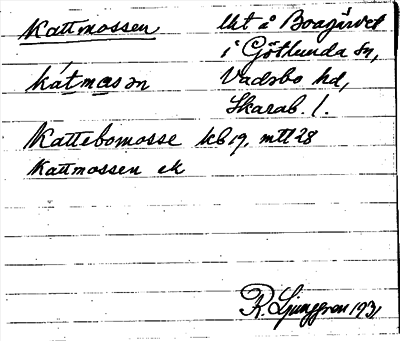 Kattmossen  Ukt å Boagärdet
i Götlunda sn,
kátmàsən  Vadsbo hd,
Skarab. l.
Kattebomosse kb 19, mtl 28
Kattmossen ek
R. Ljunggren 1931